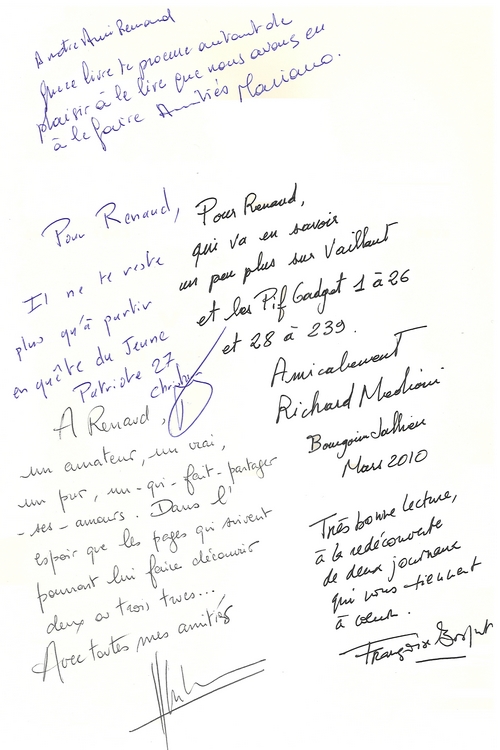 A notre Ami Renaud
que ce livre te procure autant de
plaisir à le lire que nous avons eu
à le faire Amitiés Mariano.
Pour Renaud,
Il ne te reste
plus qu'à partir
en quête du Jeune
Patriote 27
Pour Renaud,
qui va en savoir
un peu plus sur Vaillant
et les Pif Gadget 1 à 26
et 28 à 239.
Amicalement
Richard Medioni
Bourgoin Jallieu
Mars 2010
A Renaud,
un amateur, un vrai,
un pur, un-qui-fait-partager
-ses-amours. Dans l'
espoir que les pages qui suivent
pourront lui faire découvrir
deux ou trois trucs...
Avec toutes mes amitiés
Très bonne lecture,
à la redécouverte
de deux journaux
qui vous tiennent
à cœur.
Françoise